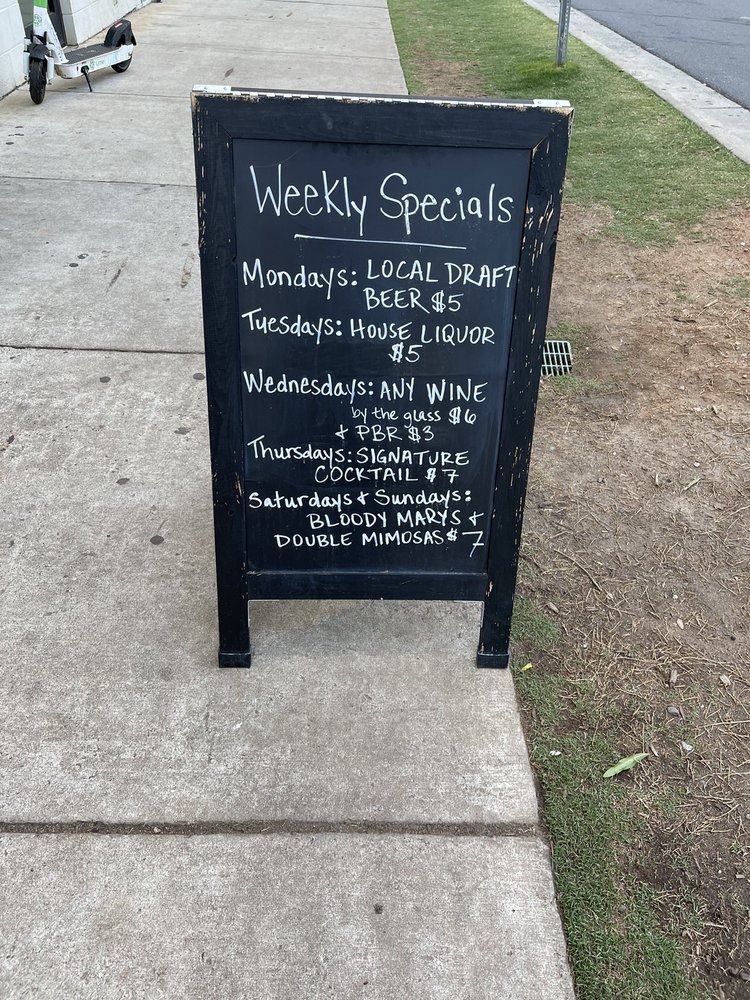 Weekly Specials
Mondays: LOCAL DRAFT
BEER $5
Tuesdays: HOUSE LIQUOR
$5
Wednesdays: ANY WINE
by the glass $6
+ PBR $3
Thursdays: SIGNATURE
COCKTAIL $7
Saturdays + Sundays:
BLOODY MARYS +
DOUBLE MIMOSAS $7